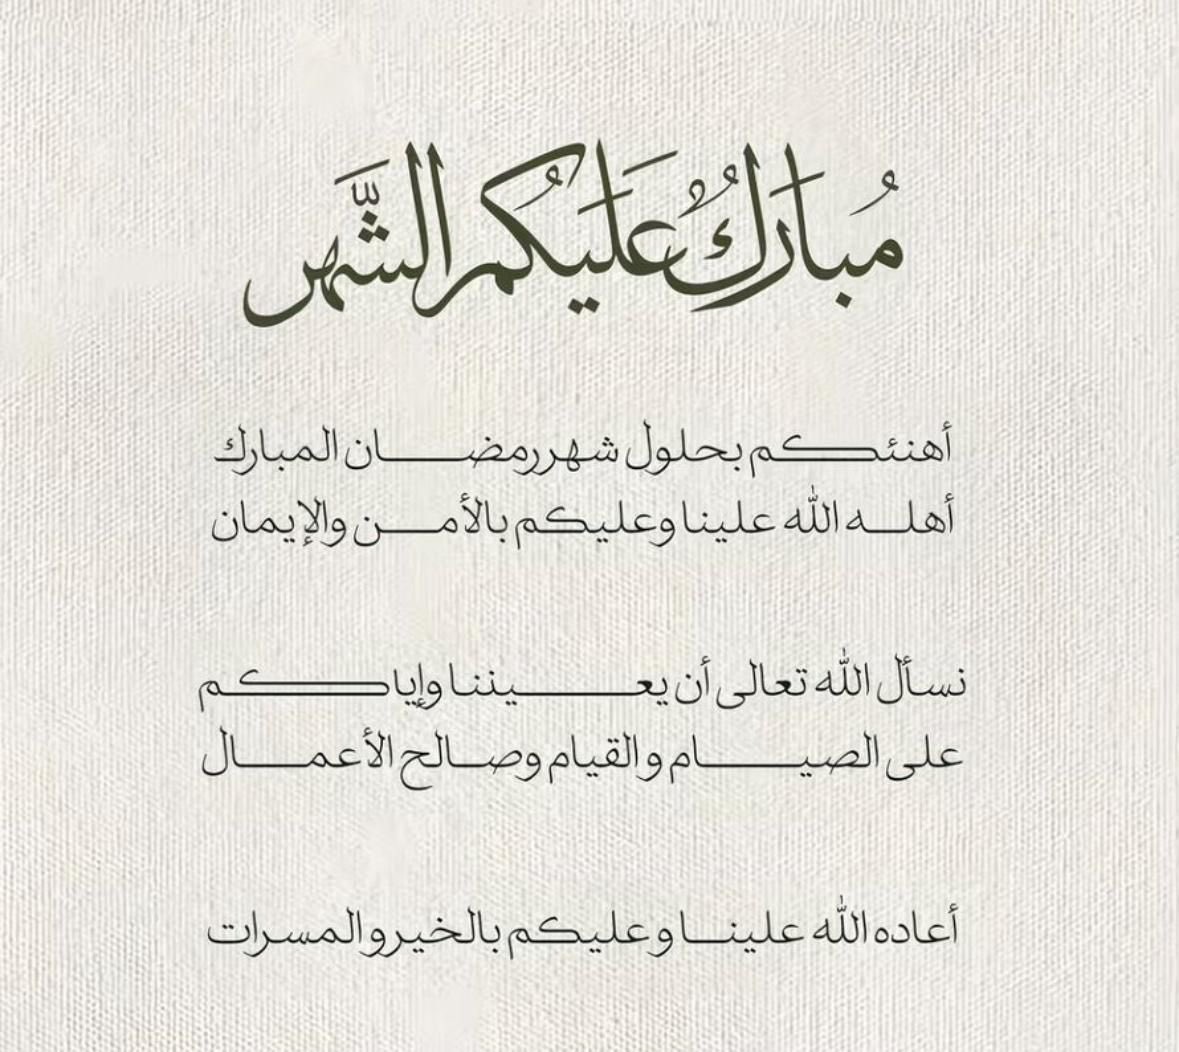 مُبارَكٌ عَلَيْكُم الشَّهر
أهنئكم بحلول شهر رمضان المبارك
أهله الله علينا وعليكم بالأمن والإيمان
نسأل الله تعالى أن يعيننا وإياكم
على الصيام والقيام وصالح الأعمال
أعاده الله علينا وعليكم بالخير والمسرات